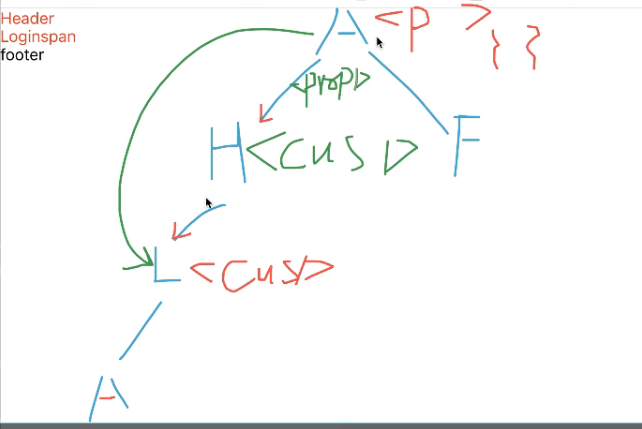 Header
Loginspan
footer
A <P >
} }
<prop>
H <Cus > F
L <Cus>
A